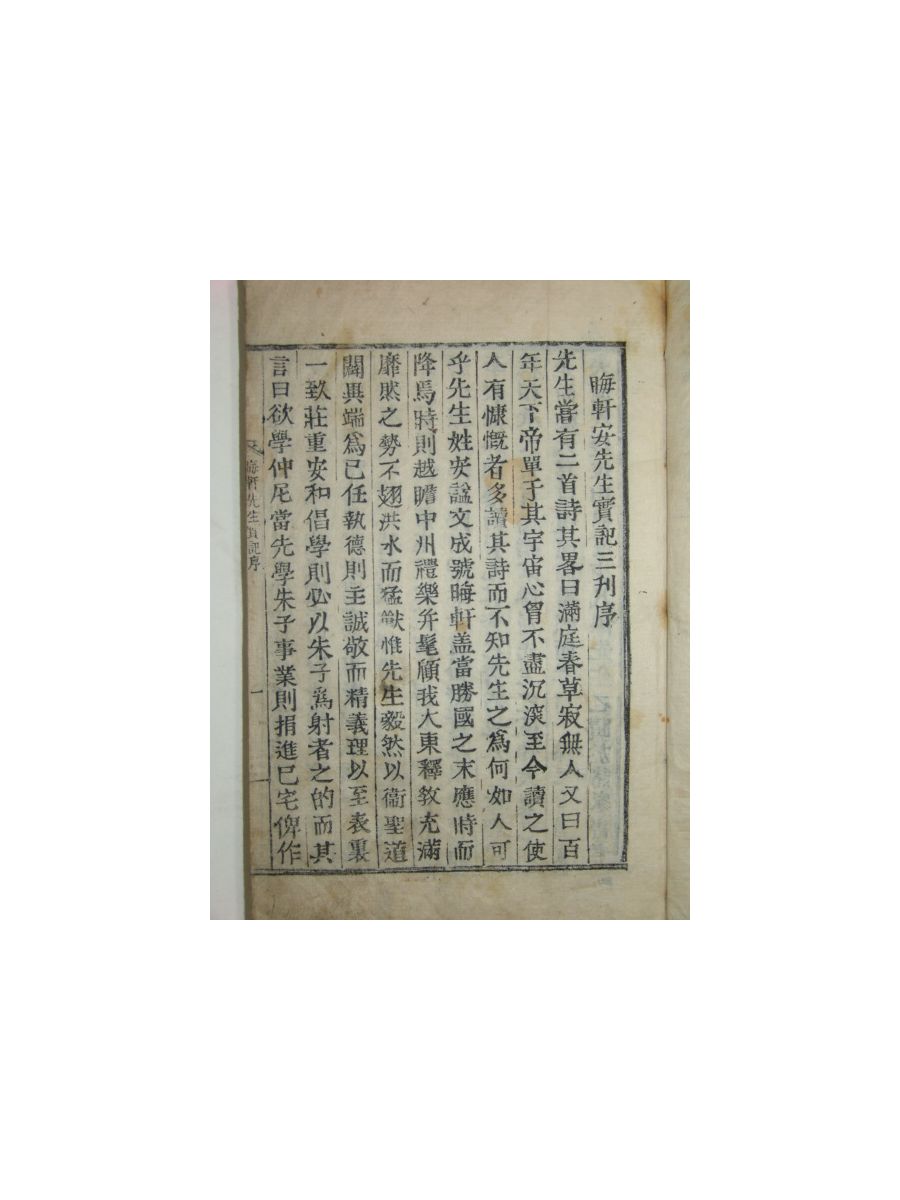 晦軒安先生實記三刊序
先生嘗有二首詩其畧曰滿庭春草寂無人又曰百
年天下帝單于其宇宙心胷不盡沉深至今讀之使
人有慷慨者多讀其詩而不知先生之爲何如人可
乎先生姓安諡文成號晦軒盖當勝國之末應時而
降焉時則越瞻中州禮樂弁髦顧我大東釋敎充滿
靡然之勢不翅洪水而猛獸惟先生毅然以衞聖道
闢異端爲已任執德則主誠敬而精義理以至表裏
一致莊重安和倡學則必以朱子爲射者之的而其
言曰欲學仲尼當先學朱子事業則捐進巳宅俾作
晦軒先生實記序
一